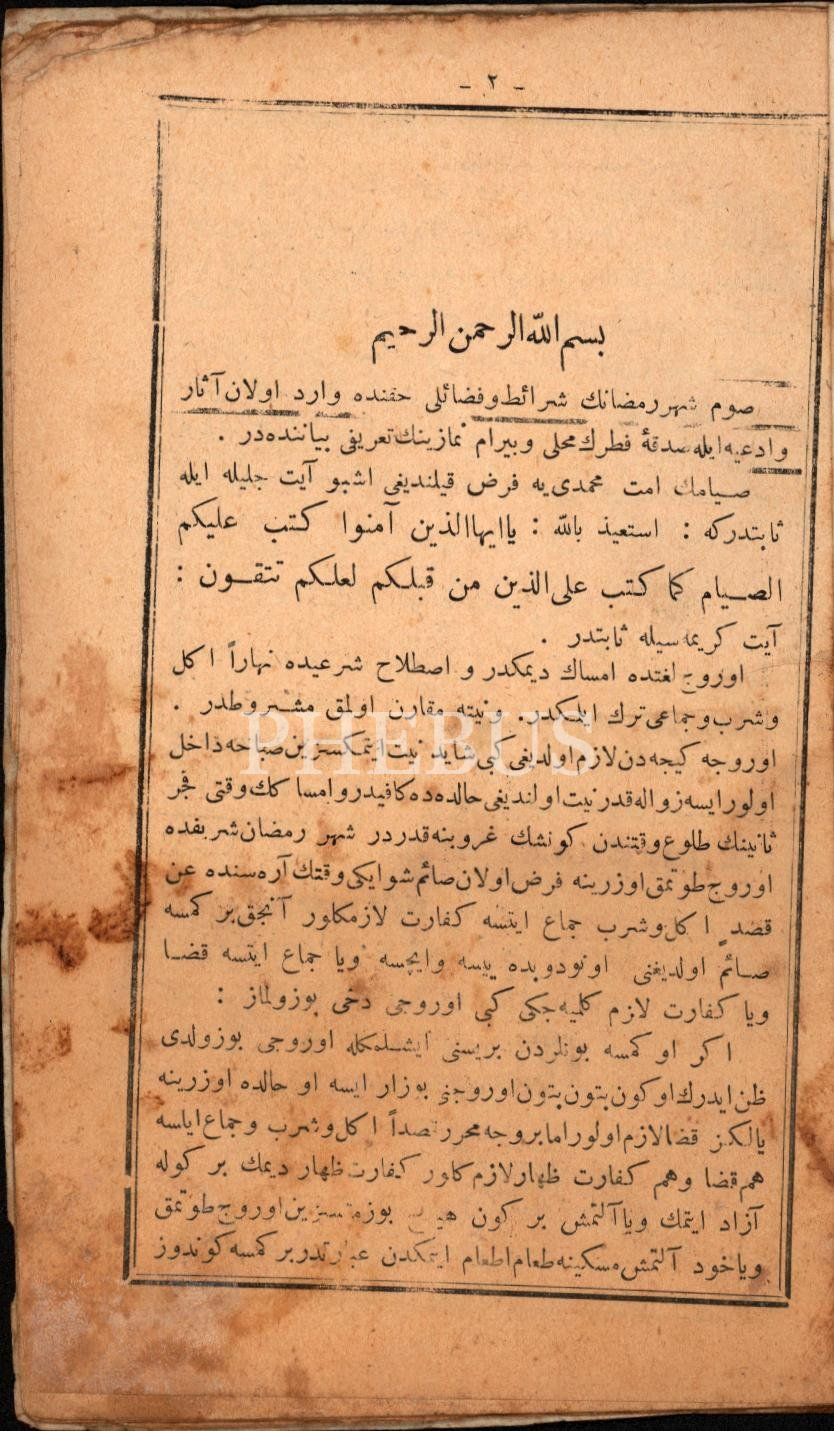 - ٢ -
بسم الله الرحمن الرحيم
صوم شهر رمضانك شرائط وفضائلی حقنده وارد اولان آثار
وادعیه ایله صدقهٔ فطرك محلی وبیرام نمازینك تعریفی بیاننده در .
صیامك امت محمدی یه فرض قیلندیغی اشبو آیت جلیله ایله
ثابتدرکه : استعیذ بالله : یاایهاالذین آمنوا کتب علیکم
الصیام کما کتب علی الذین من قبلکم لعلکم تتقون :
آیت کریمه سیله ثابتدر .
اوروج لغتده امساك دیمکدر و اصطلاح شرعیده نهاراً اکل
وشرب وجماعی ترك ایلمکدر. ونیته مقارن اولمق مشروطدر .
PHEBUS
اوروجه کیجه دن لازم اولدیغی کبی شاید نیت ایتمکسزین صباحه داخل
اولور ایسه زواله قدر نیت اولندیغی حالده ده کافیدر وامساکك وقتی فجر
ثانینك طلوع وقتندن کونشك غروبنه قدردر شهر رمضان شریفده
اوروج طوتمق اوزرینه فرض اولان صائم شو ایکی وقتك آره سنده عن
قصدٍ اکل وشرب جماع ایتسه کفارت لازمکلور آنجق بر کمسه
صائم اولدیغنی اونودوبده ییسه وایچسه ویا جماع ایتسه قضا
ویا کفارت لازم کلمیه جکی کبی اوروجی دخی بوزولماز :
اکر او کمسه بونلردن بریسنی ایشلمکله اوروجی بوزولدی
ظن ایدرك اوکون بتون بتون اوروجنی بوزار ایسه او حالده اوزرینه
یالکز قضا لازم اولور اما بر وجه محرر قصداً اکل وشرب وجماع ایلسه
هم قضا وهم کفارت ظهار لازم کلور کفارت ظهار دیمك بر کوله
آزاد ایتمك ویا آلتمش بر کون هیچ بوزمقسزین اوروج طوتمق
ویاخود آلتمش مسکینه طعام اطعام ایتمکدن عبارتدر بر کمسه کوندوز